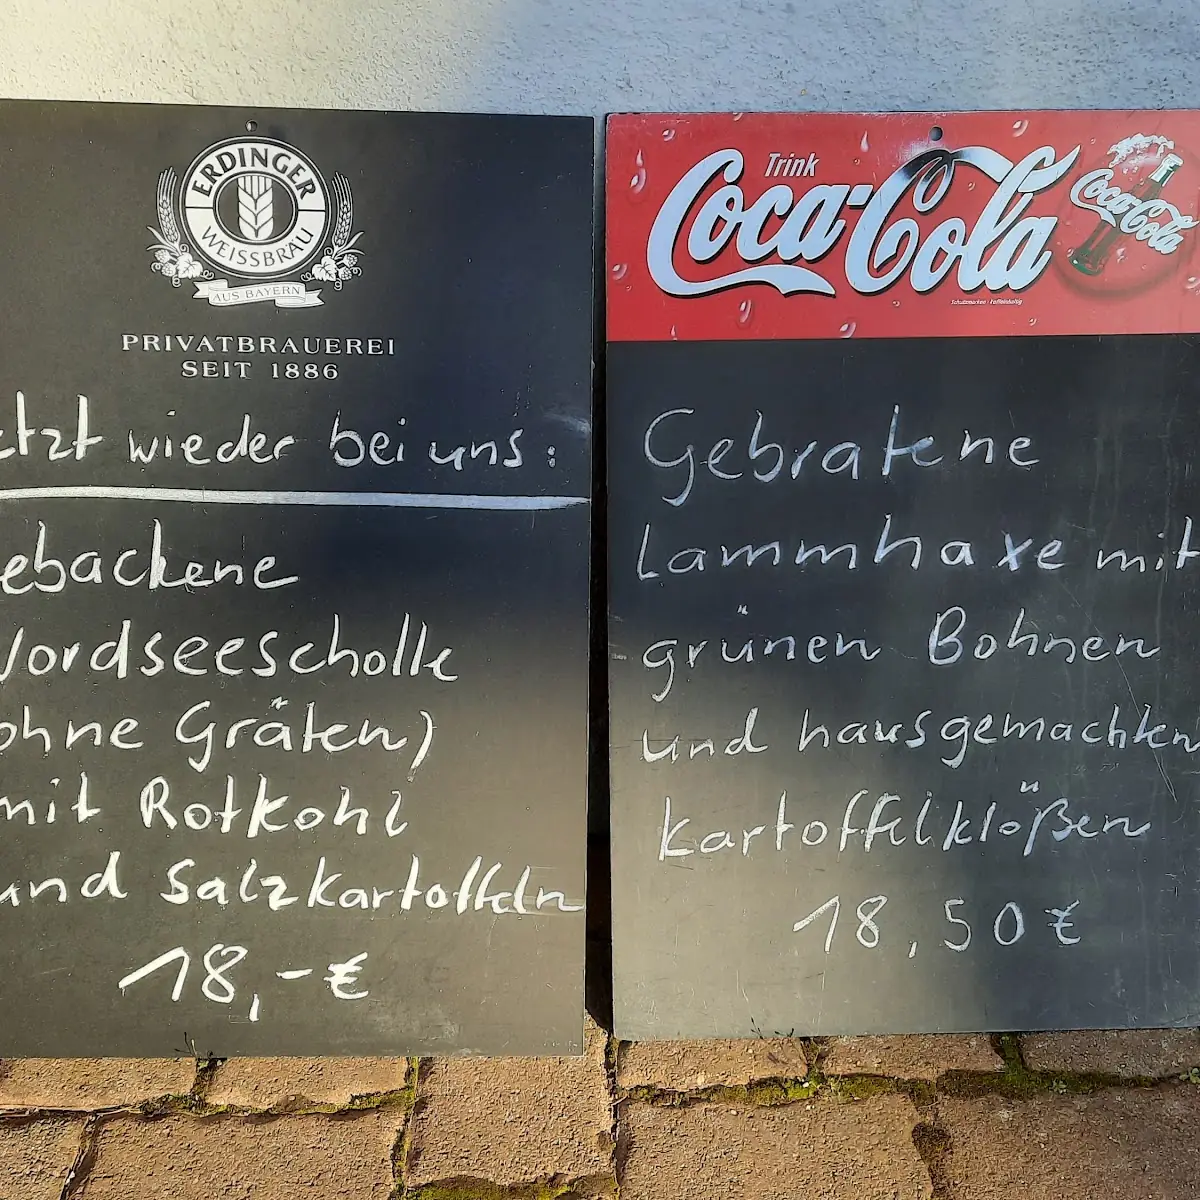 ERDINGER
WEISSBRÄU
AUS BAYERN
PRIVATBRAUEREI
SEIT 1886
etzt wieder bei uns:
ebackene
Nordseescholle
ohne Gräten)
mit Rotkohl
und Salzkartoffeln
18,-€
Trink
Coca-Cola
Coca-Cola
Schutzmarken · koffeinhaltig
Gebratene
Lammhaxe mit
grünen Bohnen
und hausgemachten
Kartoffelklößen
18,50€